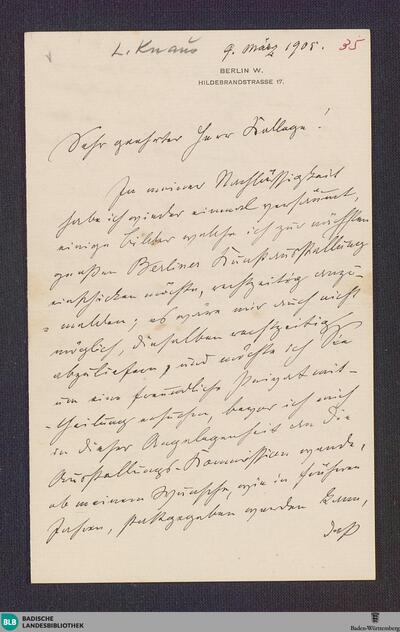 L. Knaus 9. März 1905. 35
BERLIN W.
HILDEBRANDSTRASSE 17.
Sehr geehrter Herr Kollege!
In meiner Nachlässigkeit
habe ich wieder einmal versäumt,
einige Bilder welche ich zur nächsten
großen Berliner Kunstausstellung
einschicken möchte, rechtzeitig anzu-
-melden; es wäre mir auch nicht
möglich, dieselben rechtzeitig
abzuliefern, und möchte ich Sie
um eine freundliche Privatmit-
-theilung ersuchen, bevor ich mich
in dieser Angelegenheit an die
Ausstellungs-Kommission wende,
ob meinem Wunsche, wie in früheren
Jahren, stattgegeben werden kann,
daß
BLB BADISCHE
LANDESBIBLIOTHEK
Baden-Württemberg